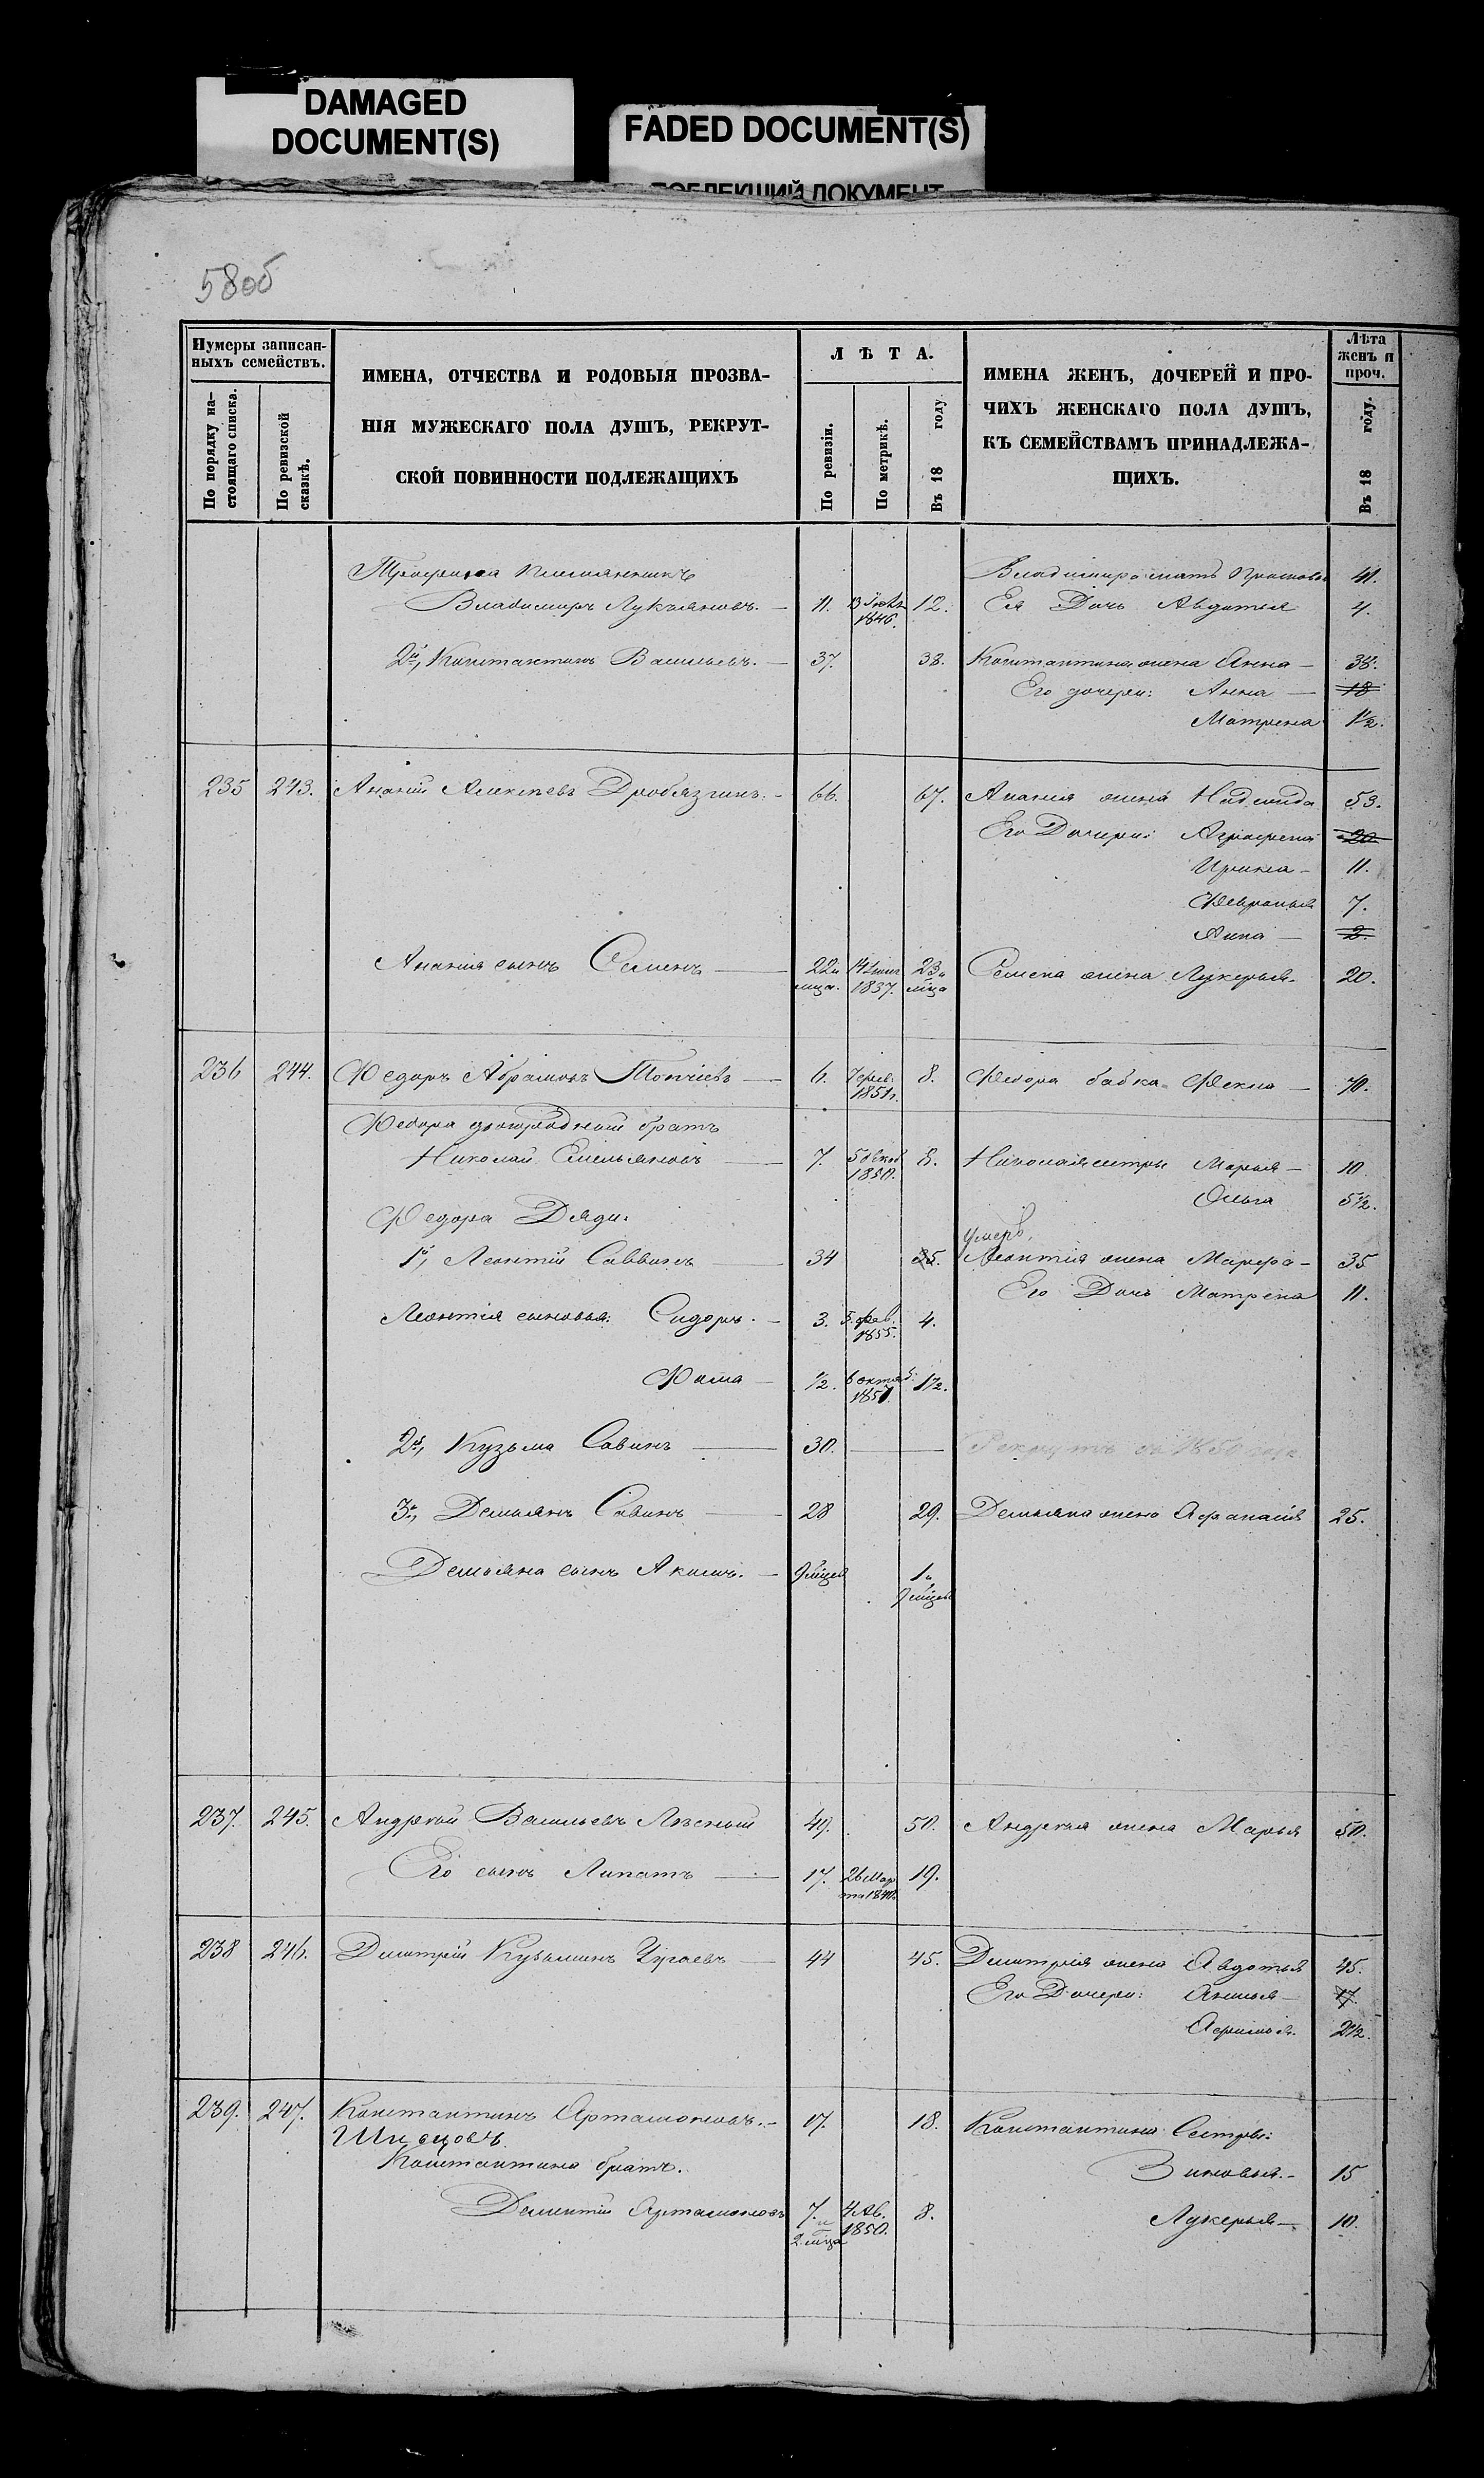 DAMAGED
DOCUMENT(S)
FADED DOCUMENT(S)
580б
Нумеры записан-
ныхъ семействъ.
По порядку на-
стоящаго списка.
По ревизской
сказкѣ.
ИМЕНА, ОТЧЕСТВА И РОДОВЫЯ ПРОЗВА-
НІЯ МУЖЕСКАГО ПОЛА ДУШЪ, РЕКРУТ-
СКОЙ ПОВИННОСТИ ПОДЛЕЖАЩИХЪ
ЛѢТА.
По ревизіи.
По метрикѣ.
Въ 18 году
ИМЕНА ЖЕНЪ, ДОЧЕРЕЙ И ПРО-
ЧИХЪ ЖЕНСКАГО ПОЛА ДУШЪ,
КЪ СЕМЕЙСТВАМЪ ПРИНАДЛЕЖА-
ЩИХЪ.
Лѣта
женъ и
проч.
Въ 18 году.
племянникъ Владимира мать 41.
Владимиръ Лукьяновъ. 11. 13 1846. 12. Ея Дочь Авдотья 4.
2й, Константинъ Васильевъ. 37. 38. Константина жена Анна 38.
Его дочери: Анна 18
Матрена 1½.
235 243. Ананій Алексѣевъ Дробязгинъ. 66. 67. Ананія жена 53.
Его Дочери: Аграфена 20
Ирина 11.
Февронья 7.
Анна 2.
Ананія сынъ Семенъ 22 мца. 14 1837. 23 мца Семена жена Лукерья. 20.
236 244. Федоръ Абрамовъ Топчіевъ 6. 7 февр. 1851г. 8. Федора бабка Фекла 70.
Федора двоюродный братъ
Николай Емельяновъ 7. 5 1850. 8. Николая сестры Марья 10
Ольга 5½.
Федора Дяди:
умеръ,
1й, Леонтій Саввинъ 34 35. Леонтія жена Марфа 35
Его Дочь Матрена 11.
Леонтія сыновья: Сидоръ. 3. 5 фев. 1855. 4.
Фома ½. 6 октяб. 1857. 1½.
2й, Кузьма Савинъ 30. Рекрутъ
3й, Демьянъ Савинъ 28 29. Демьяна жена Афанасія 25.
Демьяна сынъ Акимъ. 9 мцев 1 9 мцев
237. 245. Андрей Васильевъ Лѣсный 49. 50. Андрея жена Марья 50.
Его сынъ Липатъ 17. 26 Марта 1840. 19.
238 246. Дмитрій Кузьминъ Чугаевъ 44 45. Дмитрія жена Авдотья 45.
Его Дочери: Анисья 17.
Афимья. 2½.
239. 247. Константинъ Артамоновъ. 17. 18. Константина Сестры:
Константина братъ. Зиновья. 15
Дементій Артамоновъ 7. и 2 мца 4 Ав. 1850. 8. Лукерья 10.